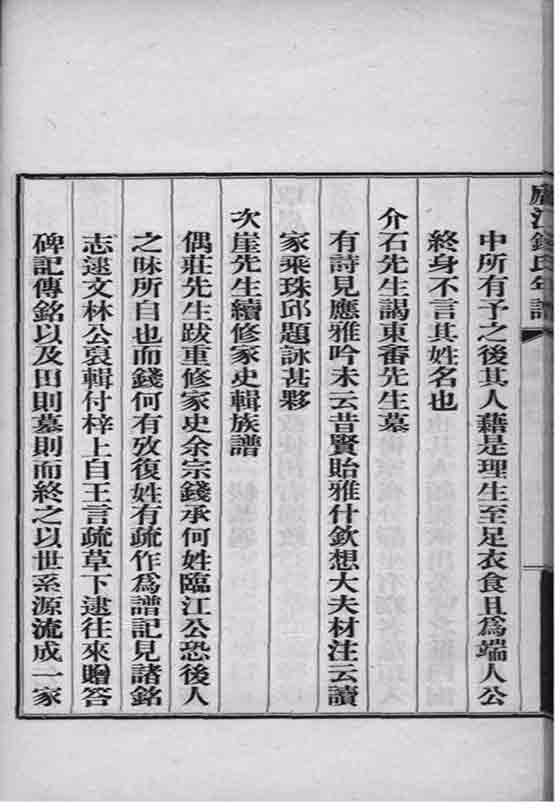 廬江錢氏年譜
中所有予之後其人藉是理生至足衣食且爲端人公
終身不言其姓名也
介石先生謁東畬先生墓
有詩見應雅吟未云昔賢貽雅什欽想大夫材注云讀
家乘珠邱題詠甚夥
次崖先生續修家史輯族譜
偶莊先生跋重修家史余宗錢承何姓臨江公恐後人
之昧所自也而錢何有攷復姓有疏作爲譜記見諸銘
志逮文林公裒輯付梓上自王言疏草下逮往來贈答
碑記傳銘以及田則墓則而終之以世系源流成一家